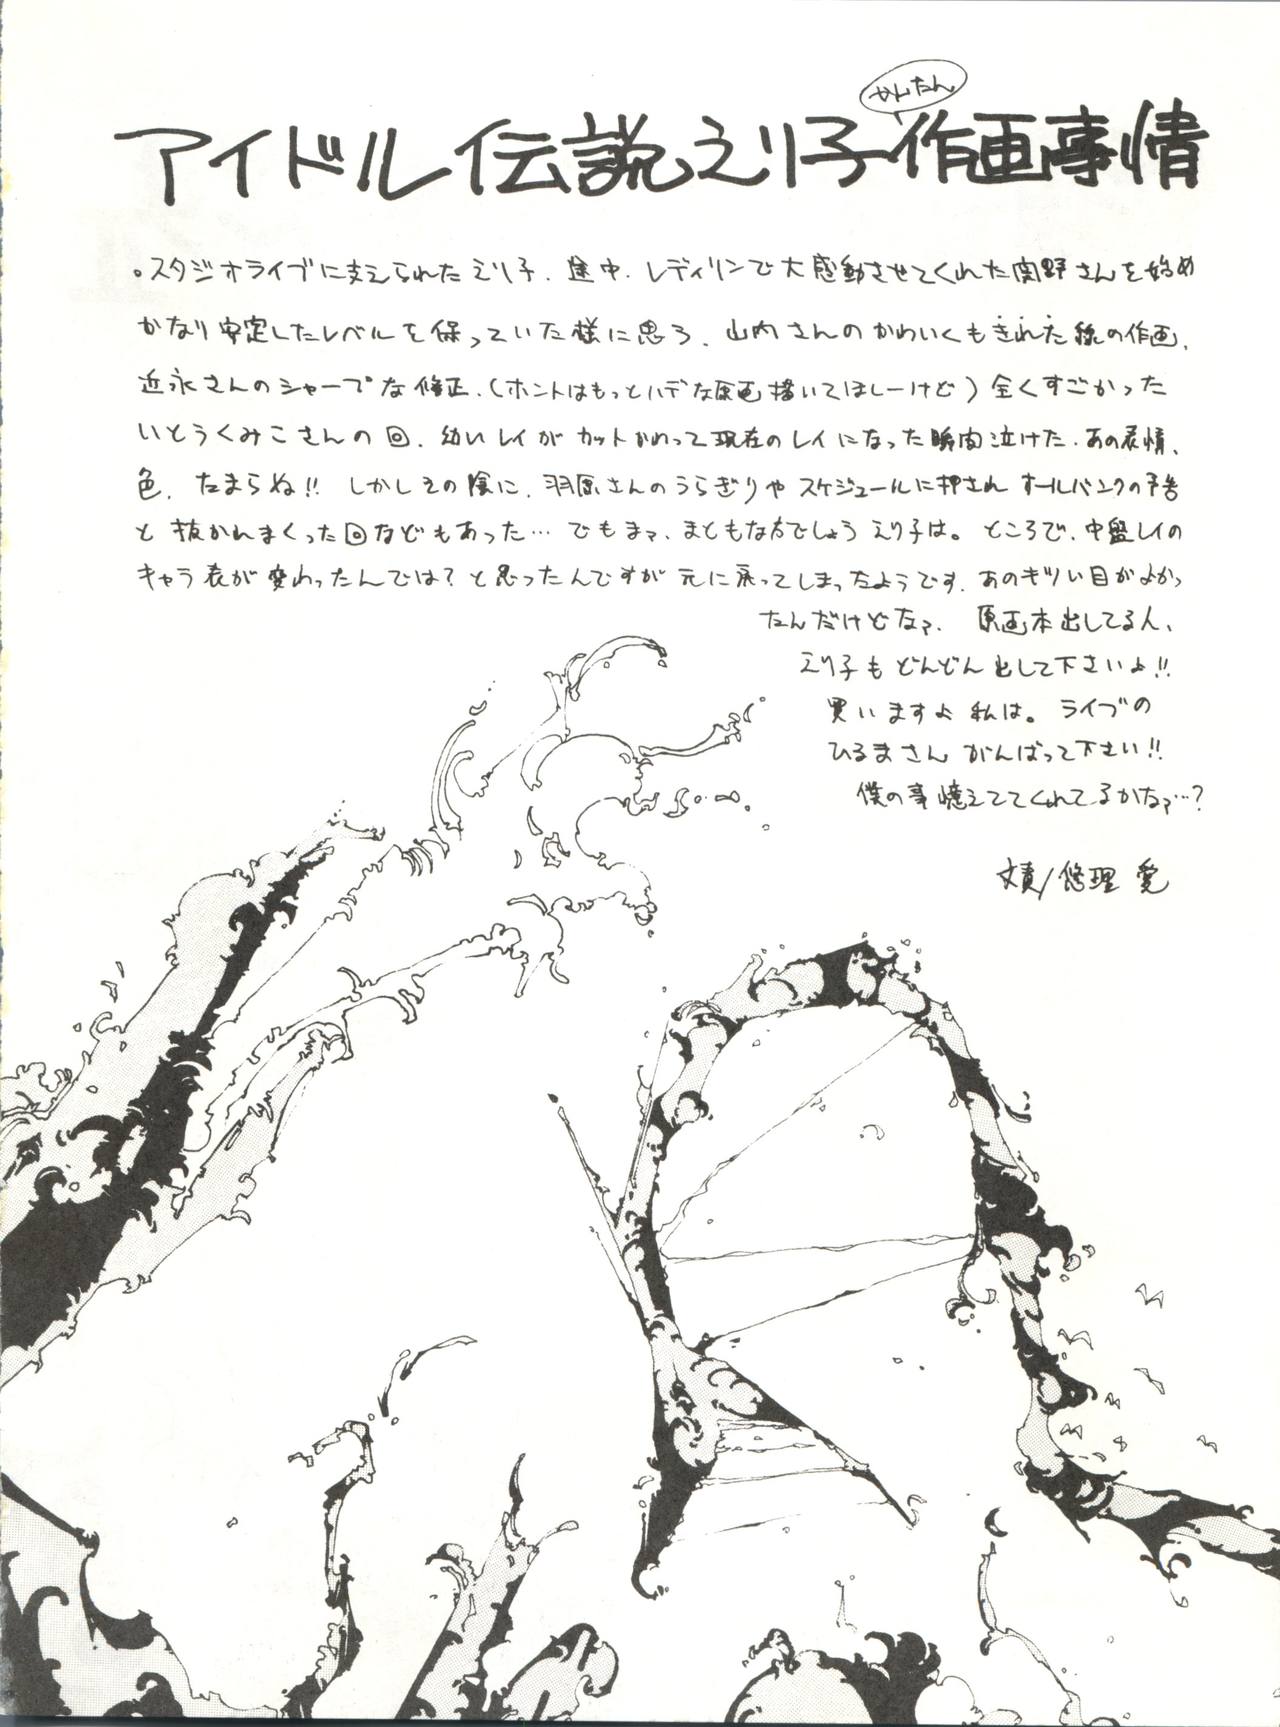 アイドル伝説えり子かんたん作画事情
。スタジオライブに支えられたえり子、途中、レディリンで大感動させてくれた関野さんを始め
かなり安定したレベルを保っていた様に思う、山内さんのかわいくもきれた線の作画、
近永さんのシャープな修正、(ホントはもっとハデな原画描いてほしーけど)全くすごかった
いとうくみこさんの回、幼いレイがカットかわって現在のレイになった瞬間泣けた、あの表情、
色、たまらぬ!! しかしその陰に、羽原さんのうらぎりやスケジュールに押されオールバンクの予告
と抜かれまくった回などもあった…でもまァ、まともな方でしょうえり子は。ところで、中盤レイの
キャラ表が変わったんでは?と思ったんですが元に戻ってしまったようです、あのギツい目がよかっ
たんだけどなァ、原画本出してる人、
えり子もどんどん出して下さいよ!!
買いますよ私は。ライブの
ひるまさんがんばって下さい!!
僕の事憶えててくれてるかなァ…?
文責/悠理愛